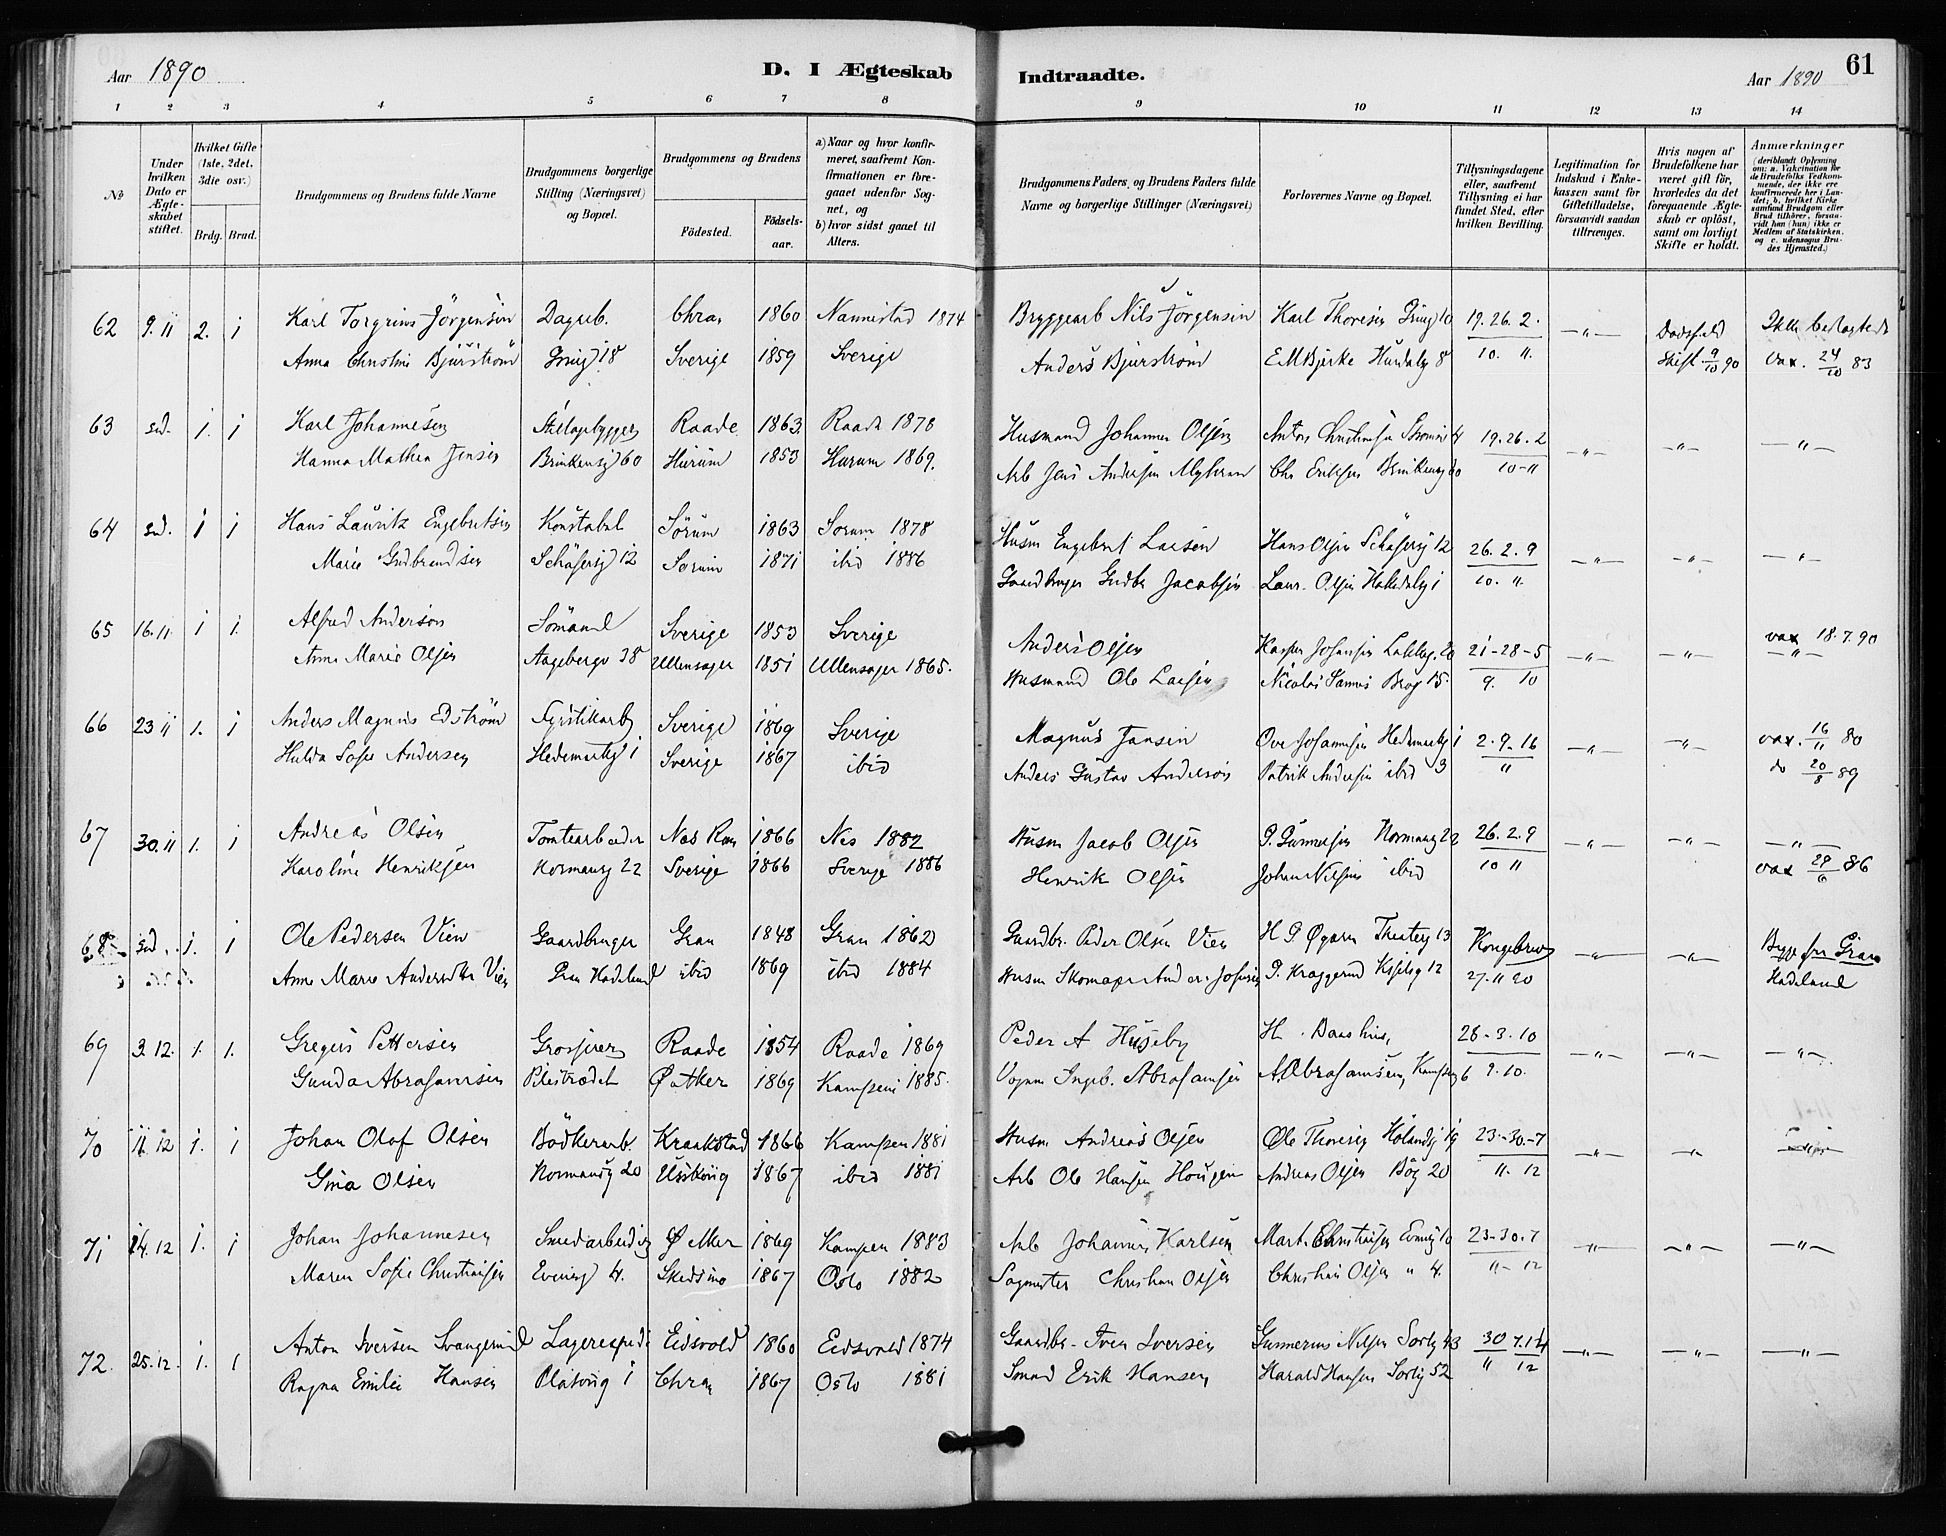 Aar 1890
D. I Ægteskab Indtraadte.
Aar 1890
61
1 2 3 4 5 6 7 8 9 10 11 12 13 14
No
Under hvilken Dato er Ægteskabet stiftet.
Hvilket Gifte (1ste, 2det, 3die osv.)
Brdg. Brud.
Brudgommens og Brudens fulde Navne
Brudgommens borgerlige Stilling (Næringsvei) og Bopæl.
Brudgommens og Brudens
Fødested.
Fødselsaar.
a) Naar og hvor konfirmeret, saafremt Konfirmationen er foregaaet udenfor Sognet, og
b) hvor sidst gaaet til Alters.
Brudgommens Faders og Brudens Faders fulde Navne og borgerlige Stillinger (Næringsvei)
Forlovernes Navne og Bopæl.
Tillysningsdagene eller, saafremt Tillysning ei har fundet Sted, efter hvilken Bevilling.
Legitimation for Indskud i Enkekassen samt for Giftetilladelse, forsaavidt saadan tiltrænges.
Hvis nogen af Brudefolkene har været gift før, hvorledes da det foregaaende Ægteskab er opløst, samt om lovligt Skifte er holdt.
Anmærkninger
(deriblandt Oplysning om: a. Vakcination for de Brudefolks Vedkommende, der ikke ere konfirmerede her i Landet; b. hvilket Kirkesamfund Brudgom eller Brud tilhører, forsaavidt han (hun) ikke er Medlem af Statskirken, og c. udensogns Brudes Hjemsted.)
62 9.11 2. 1 Karl Torgrims Jörgensen Dagarb. Chra. 1860 Nannestad 1874 Bryggearb Nils Jörgensen Karl Thoresen 10 19. 26. 2. —"— Dødsfald
Anna Christine Bjurström 18 Sverige 1859 Sverige Anders Bjurström E M Bjerke 8 10. 11. Skift. 9/10 90 Vax. 24/10 83
63 sd. 1. 1 Karl Johannesen Raade 1863 Raade 1878 Husmand Johannes Olsen Anton Christensen 4 19. 26. 2 —"— —"— —"—
Hanna Mathea Jensen 60 Hurum 1853 Hurum 1869. Arb Jens Andersen Chr Eriksen 10-11
64 sd. 1 1 Hans Lauritz Engebretsen Konstabel Sørum 1863 Sorum 1878 Husm Engebret Larsen Hans Olsen Schäfersg 12 26. 2. 9 —"— —"— —"—
Marie Gudbrandsen Schäfersg 12 Sorum 1871 ibid 1886 Gaardbruger Gudbr Jacobsen Laur. Olsen 1 10. 11.
65 16.11. 1 1. Alfred Anderson Sömand Sverige 1853 Sverige Anders Olsen Kasper Johansen 20 21-28-5 —"— —"— vax 18.7.90
Anne Marie Olsen Aagebergv 38 Ullensager 1851 Ullensager 1865. Husmand Ole Larsen Nicolai 15. 9. 10 —"—
66 23 11 1. 1 Anders Magnus Edström Sverige 1869 Sverige Magnus Jansen Ove Johannesen Hedemarkg 1 2. 9. 16 —"— —"— vax. 16/11 80
Hulda Sofie Andersen Hedemarkg 1 Sverige 1867 ibid Anders Gustav Anderson Patrik Andersen ibid 3 11 do 20/8 89
67 30.11 1. 1 Andreas Olsen Tomtearbeider Nes Rom 1866 Nes 1882 Husm Jacob Olsen P. Gunnersen Normansg 22 26. 2. 9 —"— —"— —"—
Karoline Henriksen Normansg 22 Sverige 1866 Sverige 1886 Henrik Olsen Johan Nilsen ibid 10 11 vax 29/6 86
68 sd. 1. 1 Ole Pedersen Vien Gaardbruger Gran 1848 Gran 1862 Gaardbr. Peder Olsen Vien H P Øgaren Theaterg 13 Kongebrev —"— —"— Bygg for Gran
Anne Marie Andersdtr Vien Gran Hadeland ibid 1869 ibid 1884 Husm Skomager P. Kraggerud 12 27.11 90 Hadeland
69 3.12. 1. 1. Gregers Pettersen Grosserer Raade 1854 Raade 1869 Peder A Huseby H. 28-3.10 —"— —"— —"—
Gunda Abrahamsen Pilestrædet Ø Aker 1869 Kampen 1885. Vognm Ingeb. Abrahamsen A. Abrahamsen, 6 9.10.
70 11. 12 1. 1 Johan Olaf Olsen Bödkerarb. Kraakstad 1866 Kampen 1881 Husm Andreas Olsen Ole Thoresen Hölandsg 19 23-30.-7 —"— —"—
Gina Olsen Normansg 20 1867 ibid 1881 Arb Ole Hansen Andreas Olsen Bög 20 11. 12
71 14.12 1. 1 Johan Johannesen Smedarbeider Ø Aker 1869 Kampen 1883 Arb Johannes Karlsen Mart. Christiansen 10 23-30.7 —"— —"— —"—
Maren Sofie Christiansen 4. Skedsmo 1867 Oslo 1882 Sagmester Christian Olsen Christian Olsen " 4. 11- 12
72. 25.12. 1. 1 Anton Iversen Svangerud Eidsvold 1860 Eidsvold 1874 Gaardbr. Iver Iversen Gunnerius Nilsen Sorlig 43 30 7.14 —"— —"— —"—
Ragna Emilie Hansen 1 Chra 1867 Oslo 1881 Smed Erik Hansen Harald Hansen Sorlig 52 11 12